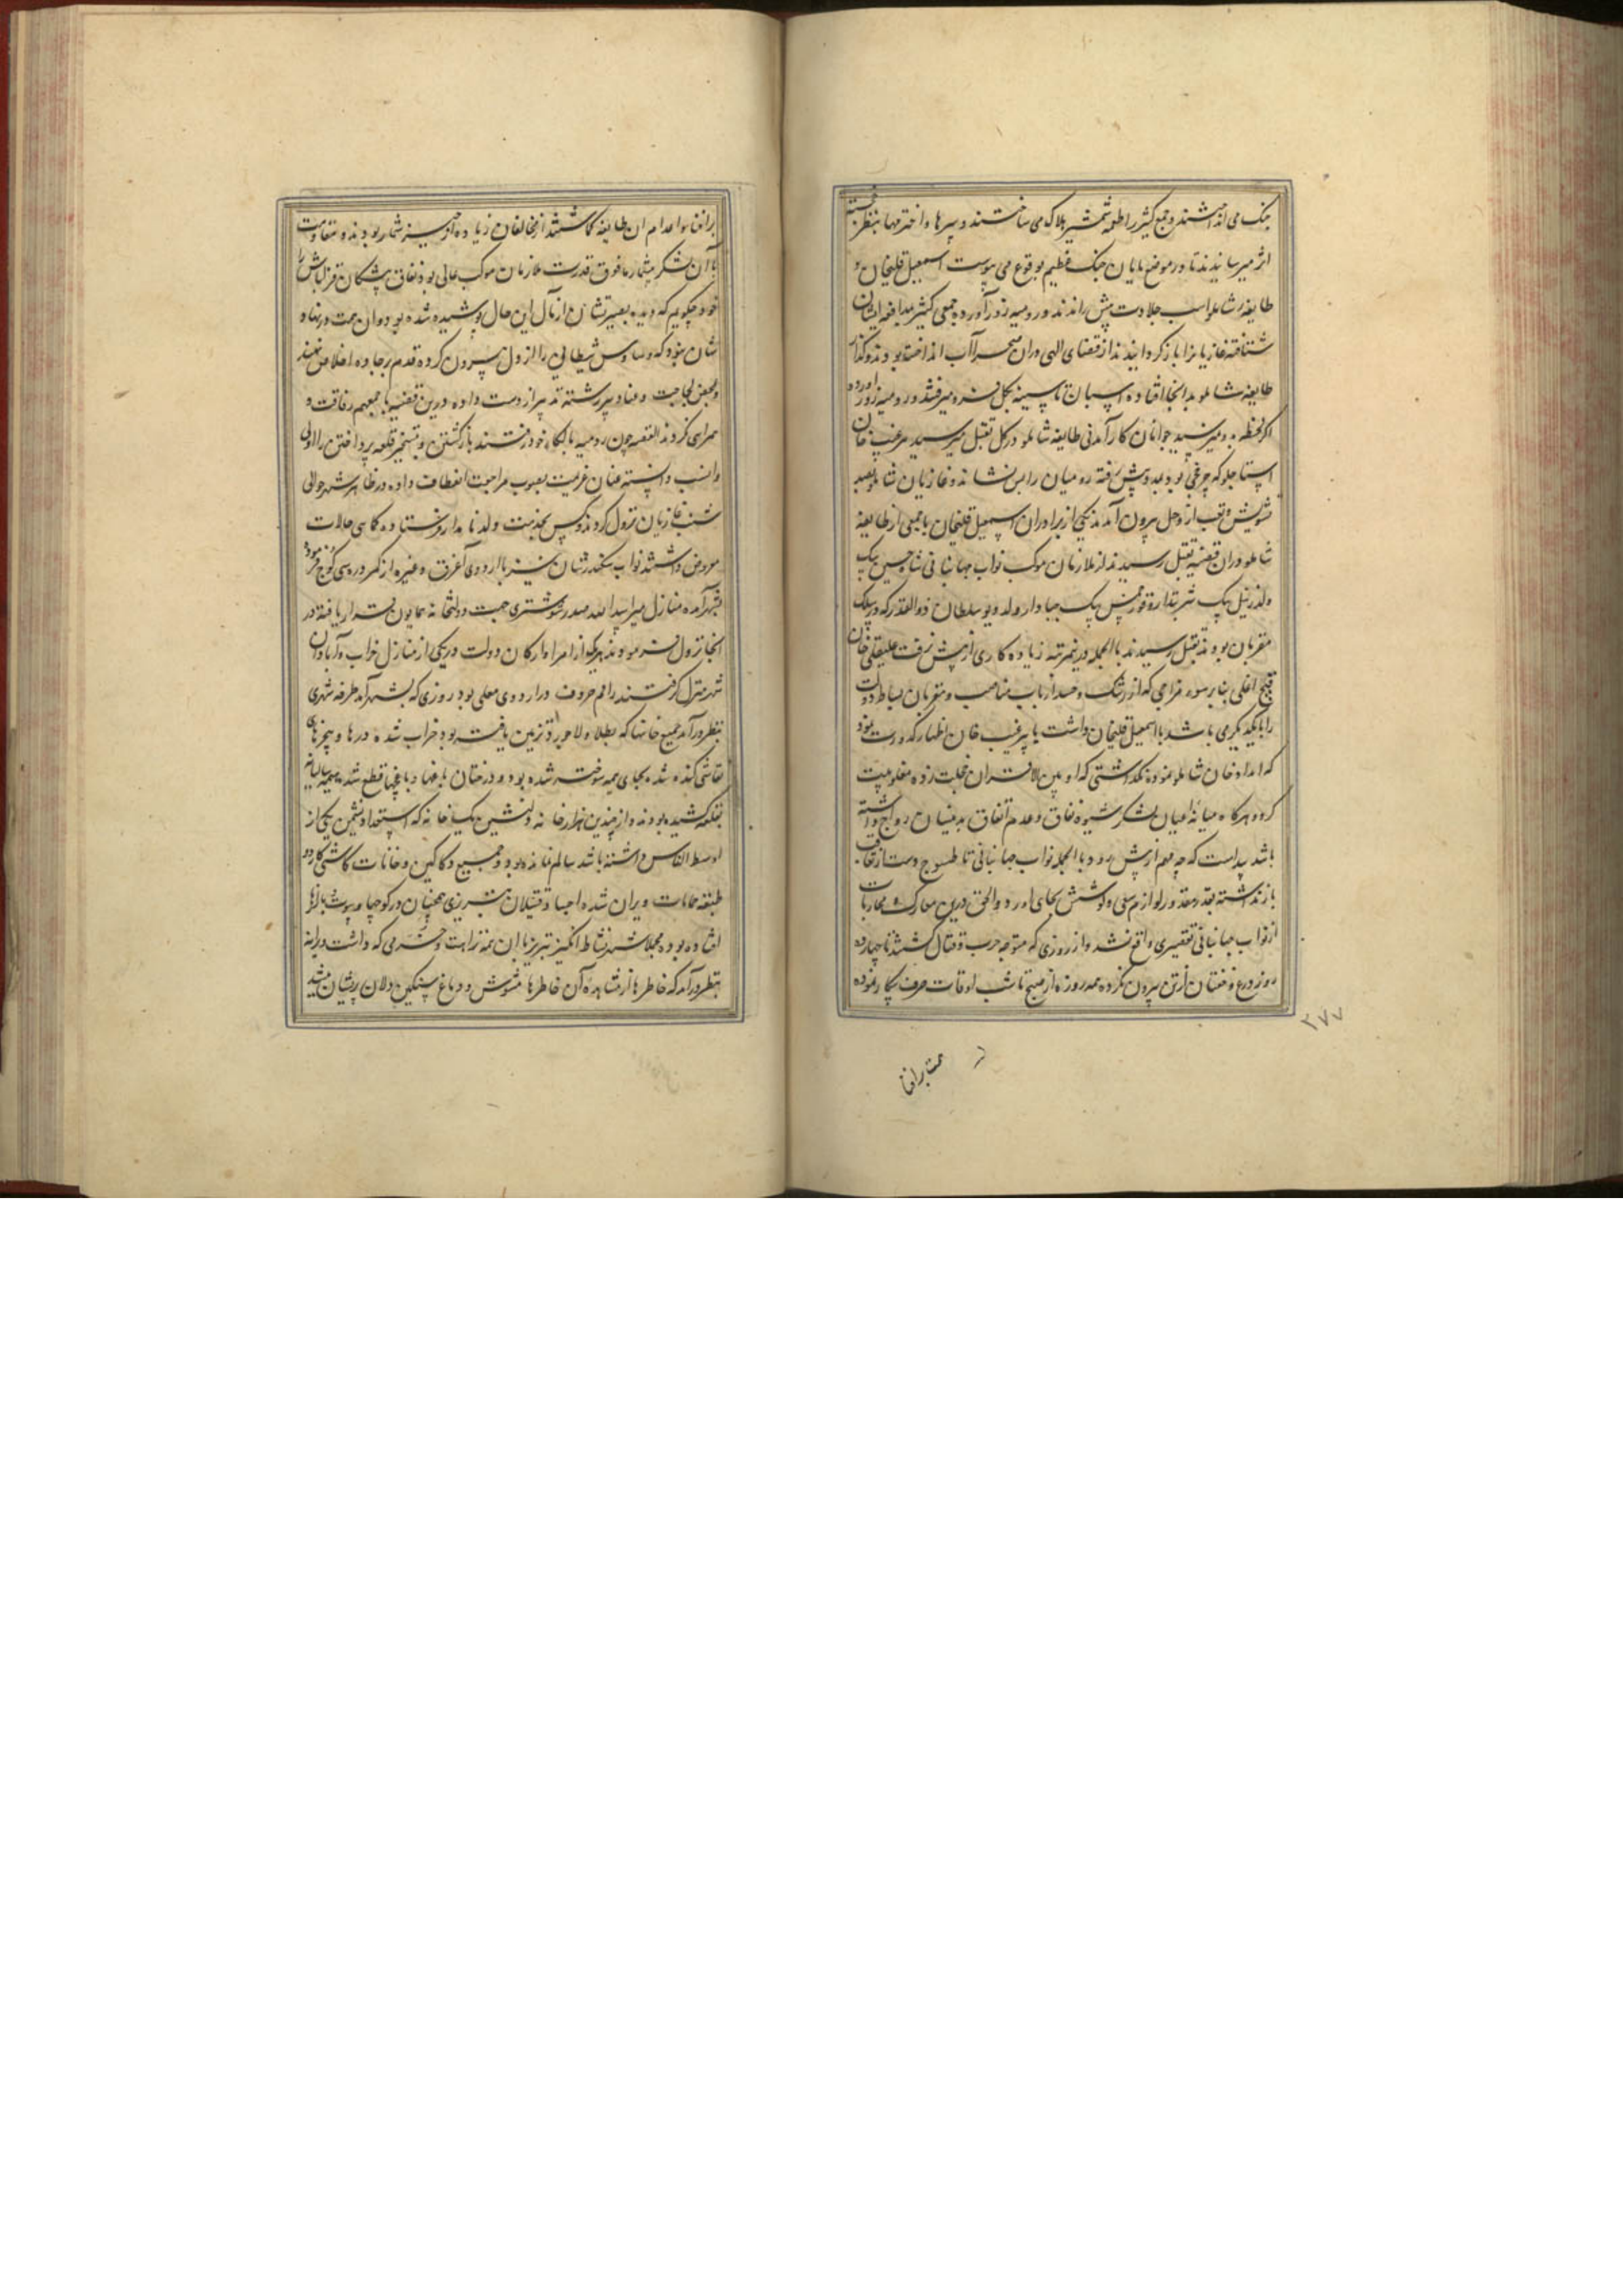 جنک می انداختند و جمع کثیر را طعمه شمشیر هلاک می ساختند و سرها و اخترمها بنظر خجسته
اثر میرسانیدند تا در موضع پایان جنک عظیم بوقوع می پیوست اسمعیل قلیخان و
طایفه شاملو اسب جلادت پیش راندند و رومیه زور آورده جمعی کثیر بمدافعه ایشان
شتافته غازیانرا باز کردانیدند از قضای الهی در ان صحرا آب انداخته بودند و کذار
طایفه شاملو بدانجا افتاده اسبان تا سینه بکل فرو میرفتند و رومیه زور آورده
اکر لحظه مدد نمیرسید جوانان کارآمدنی طایفه شاملو در کل بقتل میرسید مرغیب خان
استاجلو که چرخچی بود بمدد پیش رفته رومیان را پس نشاند و غازیان شاملو بصد
تشویش و تعب از وحل بیرون آمدند یکی از برادران اسمعیل قلیخان با جمعی از طایفه
شاملو در ان قضیه بقتل رسیدند از ملازمان موکب نواب جهانبانی شاه حسین بیک
ولد زینل بیک شربتدار و قورخمس بیک جبادار ولد دیو سلطان ذوالقدر که در سلک
مقربان بودند بقتل رسیدند بالجمله درینمرتبه زیاده کاری از پیش نرفت علیقلی خان
فتیج اغلی بنابر سوء مزاجی که از رشک و حسد ارباب مناصب و مقربان بساط دولت
را بایکدیکر می باشد با اسمعیل قلیخان داشت با پیرغیب خان اظهار کدورت نمود
که امداد خان شاملو نموده نکذاشتی که او بین الاقران خجلت زده مغلوبیت
کردد هرکاه میانه اعیان لشکر شیوه نفاق و عدم اتفاق بدینسان رواج داشته
باشد پیداست که چه مهم از پیش رود بالجمله نواب جهانبانی تا طسوج دست از تعاقب
باز نداشته بقدر مقدور لوازم سعی و کوشش بجای اورد و الحق درین معارک و محاربات
از نواب جهانبانی تقصیری واقع نشد و از روزی که متوجه حرب و قتال کشتند تا چهارده
روز درع و خفتان از تن بیرون نکرده همه روزه از صبح تا شب اوقات صرف پیکار نموده
۲۷۷
همت بر افنا
بر افنا و اعدام ان طایفه کماشتند از مخالفان زیاده از حیز شمار بودند و مقاومت
با آن لشکر بیشمار مافوق قدرت ملازمان موکب عالی بود نفاق پیشکان قزلباش را
خود چکویم که دیده بصیرتشان از مآل این حال پوشیده شده بود و ان همت در نهاد
شان نبود که وساوس شیطانی را از دل بیرون کرده قدم بر جاده اخلاص نهند
و بمحض لجاجت و عناد سر رشته تدبیر از دست داده درین قضیه با جمعیهم رفاقت و
همراهی نکردند القصه چون رومیه با بلکاء خود رفتند بازکشتن و بتسخیر قلعه پرداختن را اولی
و انسب دانسته عنان عزیمت بصوب مراجعت انعطاف داده در ظاهر شهر حوالی
شنب غازیان نزول کردند و کس بخدمت ولد نامدار فرستاده کماهی حالات
معروض داشتند نواب سکندرشان نیز با اردوی آغرق و غیره از کمر دره سی کوچ فرموده
بشهر آمده منازل میر اسدالله صدر شوشتری جهت دولتخانه همایون قرار یافته در
انجا نزول فرمودند هر کس از امرا و ارکان دولت در یکی از منازل خراب و آبادان
شهر منزل کرفتند راقم حروف در اردوی معلی بود روزی که بشهر آمد طرفه شهری
بنظر درآمد جمیع خانها که بطلا و لاجورد تزیین یافته بود خراب شده درها و پنجرهای
نقاشی کنده شده بجای هیمه سوخته شده بود و درختان باغها و باغچها قطع شده هیمه سالیانه
بقلعه کشیده بودند و از چندین هزار خانه دلنشین یک خانه که استعداد نشیمن یکی از
اوسط الناس داشته باشد سالم نمانده بود و جمیع دکاکین و خانات کاشی کار دو
طبقه حمامات ویران شده اجساد قتیلان تبریزی همچنان در کوچها و بیوت و بازارها
افتاده بوده مجملا شهر نشاط انکیز تبریز با ان همه نزاهت و خرمی که داشت ویرانه
بنظر درآمد که خاطرها از مشاهده آن خاطرها مشوش و دماغ سنکین دلان پریشان میشد